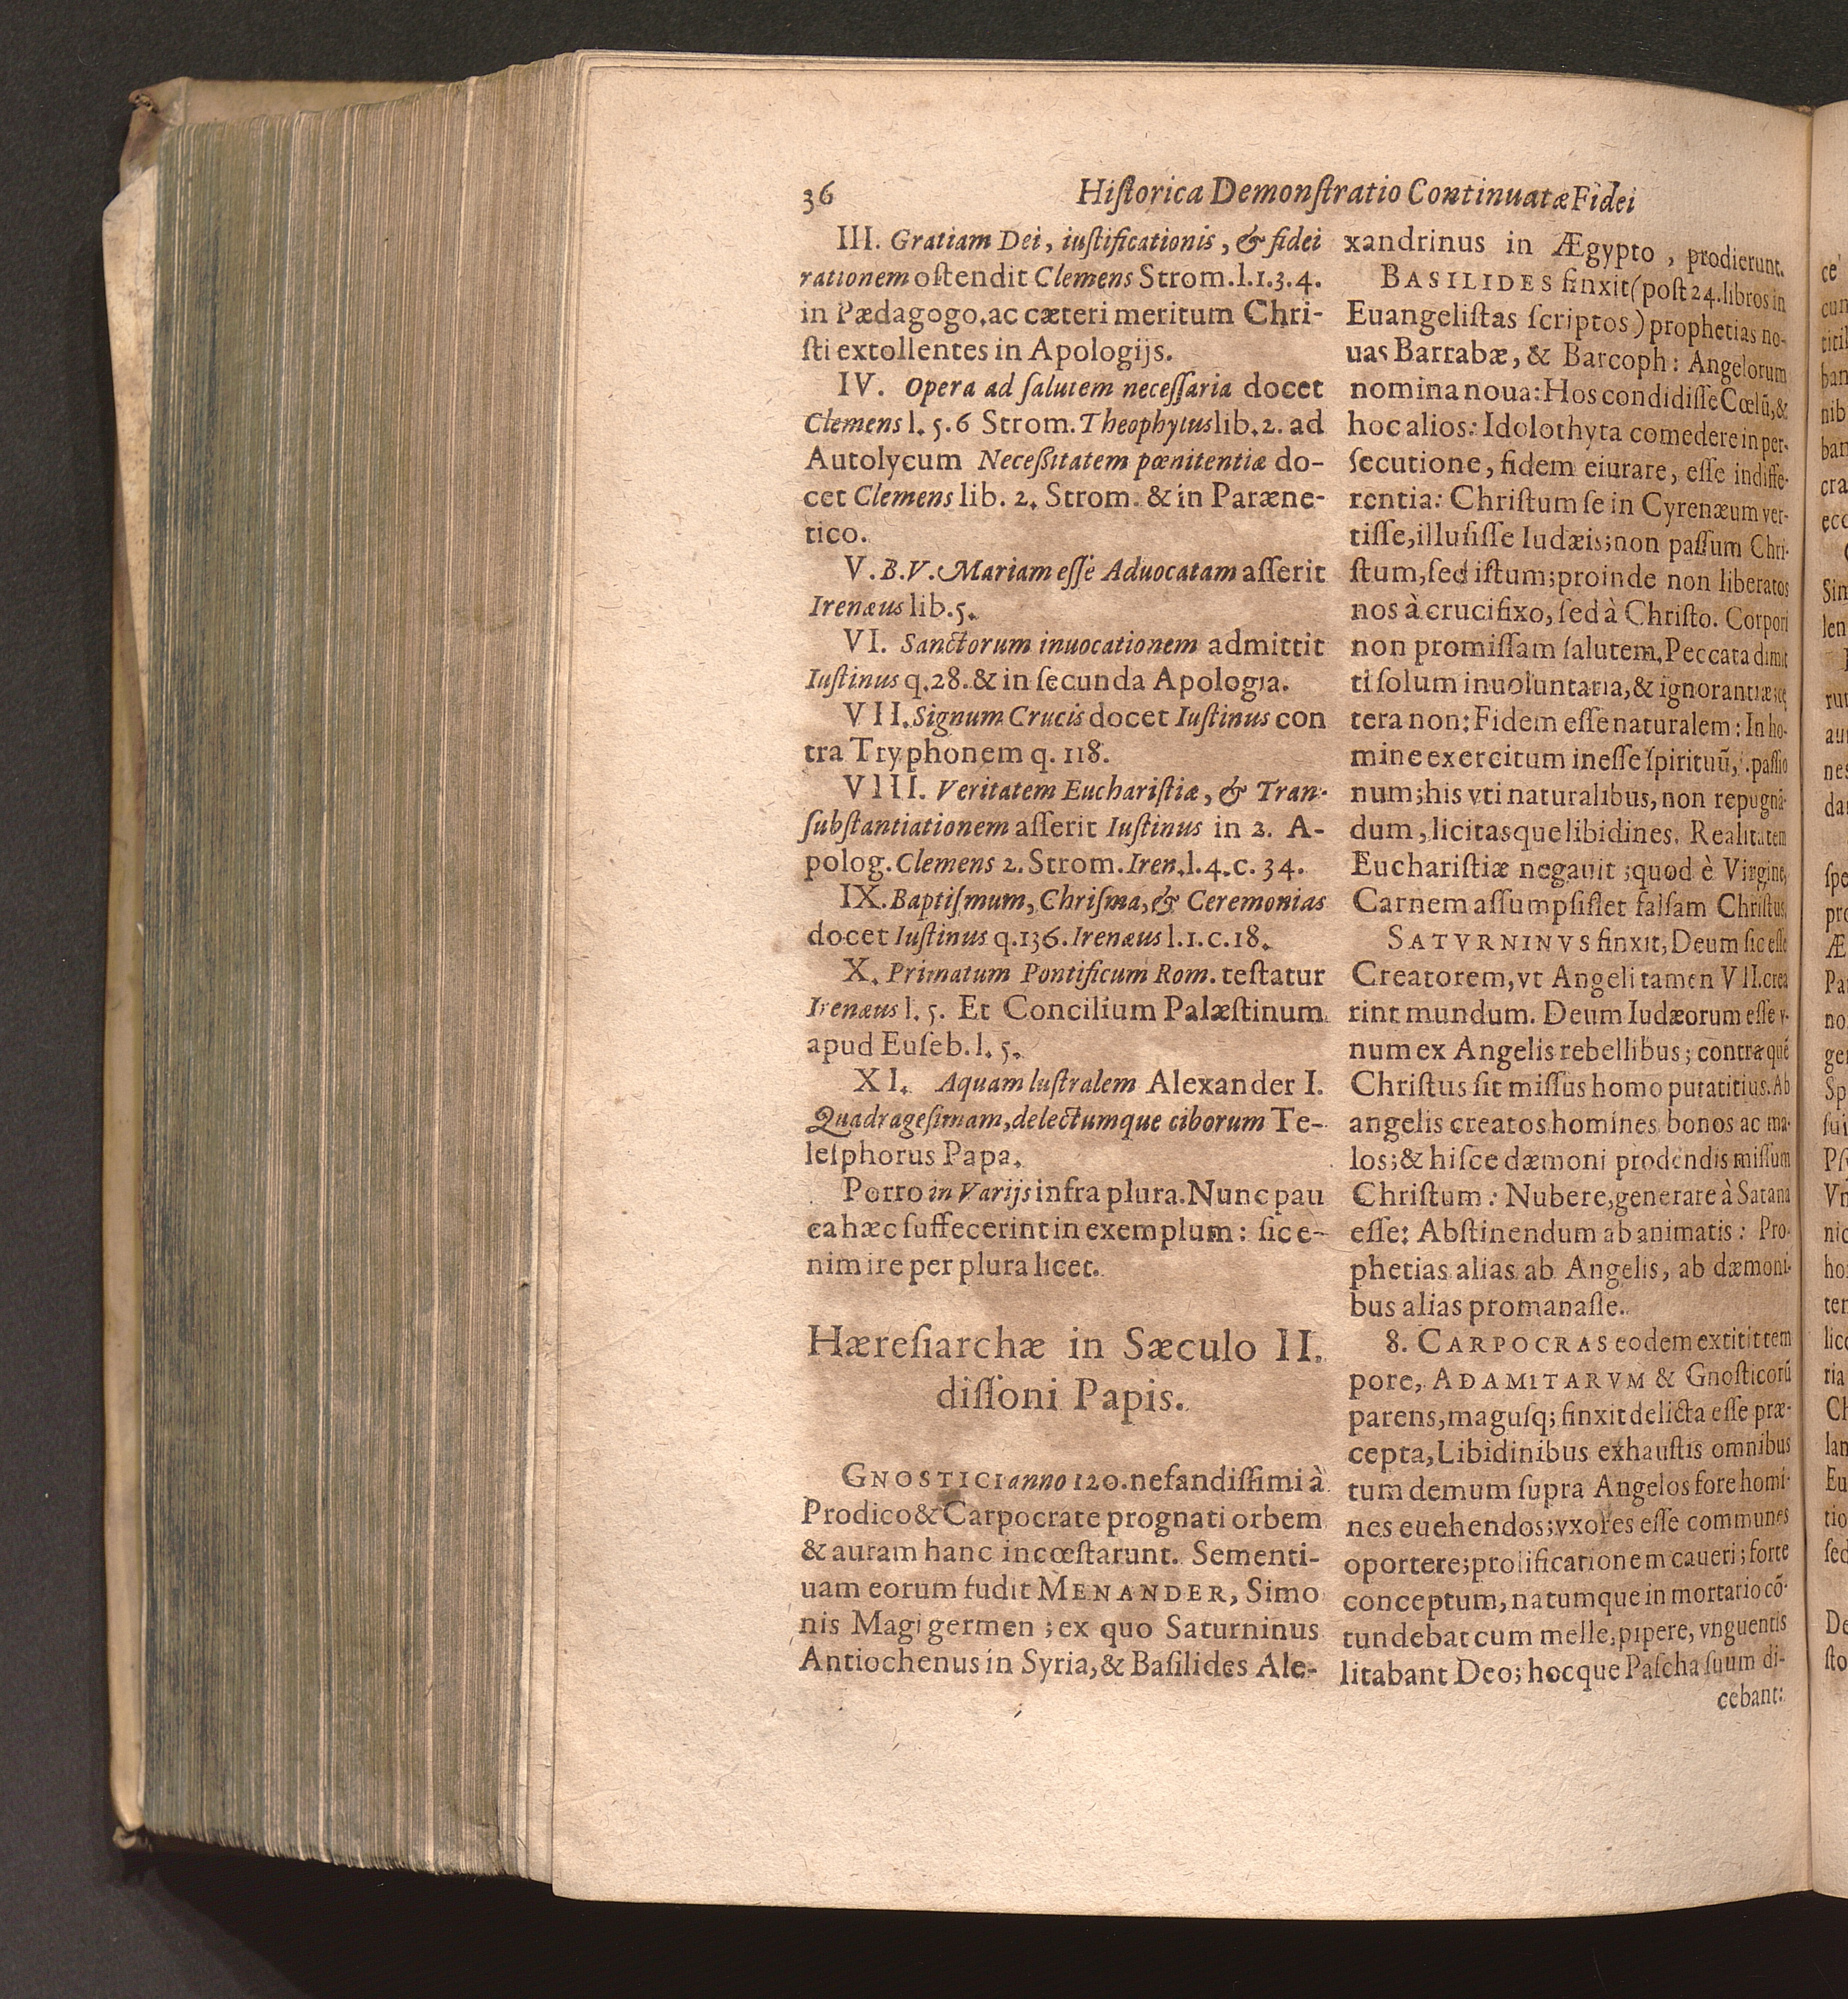 36 Hiſtorica Demonſtratio Continuatæ Fidei
III. Gratiam Dei, iuſtificationis, & fidei
rationem oſtendit Clemens Strom. l. 1. 3. 4.
in Pædagogo, ac cæteri meritum Chri-
ſti extollentes in Apologijs.
IV. Opera ad ſalutem neceſſaria docet
Clemens l. 5. 6 Strom. Theophytus lib. 2. ad
Autolycum Neceßitatem pœnitentiæ do-
cet Clemens lib. 2. Strom. & in Paræne-
tico.
V. B. V. Mariam eſſe Aduocatam aſſerit
Irenæus lib. 5.
VI. Sanctorum inuocationem admittit
Iuſtinus q. 28. & in ſecunda Apologia.
VII. Signum Crucis docet Iuſtinus con
tra Tryphonem q. 118.
VIII. Veritatem Euchariſtiæ, & Tran-
ſubſtantiationem aſſerit Iuſtinus in 2. A-
polog. Clemens 2. Strom. Iren. l. 4. c. 34.
IX. Baptiſmum, Chriſma, & Ceremonias
docet Iuſtinus q. 136. Irenæus l. 1. c. 18.
X. Primatum Pontificum Rom. teſtatur
Irenæus l. 5. Et Concilium Palæſtinum
apud Euſeb. l. 5.
XI. Aquam luſtralem Alexander I.
Quadrageſimam, delectumque ciborum Te-
leſphorus Papa.
Porro in Varijs infra plura. Nunc pau
ca hæc ſuffecerint in exemplum: ſic e-
nim ire per plura licet.
Hæreſiarchæ in Sæculo II.
diſſoni Papis.
GNOSTICI anno 120. nefandiſſimi à
Prodico & Carpocrate prognati orbem
& auram hanc incœſtarunt. Sementi-
uam eorum fudit MENANDER, Simo
nis Magi germen; ex quo Saturninus
Antiochenus in Syria, & Baſilides Ale-
xandrinus in Ægypto, prodierunt.
BASILIDES finxit (poſt 24. libros in
Euangeliſtas ſcriptos) prophetias no-
uas Barrabæ, & Barcoph: Angelorum
nomina noua: Hos condidiſſe Cœlũ, &
hoc alios: Idolothyta comedere in per-
ſecutione, fidem eiurare, eſſe indiffe-
rentia: Chriſtum ſe in Cyrenæum ver-
tiſſe, illuſiſſe Iudæis; non paſſum Chri-
ſtum, ſed iſtum; proinde non liberatos
nos à crucifixo, ſed à Chriſto. Corpori
non promiſſam ſalutem. Peccata dimit
ti ſolum inuoluntaria, & ignorantiæ; cę
tera non: Fidem eſſe naturalem: In ho-
mine exercitum ineſſe ſpirituũ, paſſio
num; his vti naturalibus, non repugnã-
dum, licitasque libidines. Realitatem
Euchariſtiæ negauit; quod è Virgine,
Carnem aſſumpſiſſet falſam Chriſtus.
SATVRNINVS finxit, Deum ſic eſſe
Creatorem, vt Angeli tamen VII. crea
rint mundum. Deum Iudæorum eſſe v-
num ex Angelis rebellibus; contra quẽ
Chriſtus ſit miſſus homo putatitius. Ab
angelis creatos homines bonos ac ma-
los; & hiſce dæmoni prodendis miſſum
Chriſtum: Nubere, generare à Satana
eſſe: Abſtinendum ab animatis: Pro-
phetias alias ab Angelis, ab dæmoni-
bus alias promanaſſe.
8. CARPOCRAS eodem extitit tem
pore, ADAMITARVM & Gnoſticorũ
parens, maguſq; finxit delicta eſſe præ-
cepta, Libidinibus exhauſtis omnibus
tum demum ſupra Angelos fore homi-
nes euehendos; vxores eſſe communes
oportere; prolificationem caueri; forte
conceptum, natumque in mortario cõ-
tundebat cum melle, pipere, vnguentis
litabant Deo; hocque Paſcha ſuum di-
cebant: